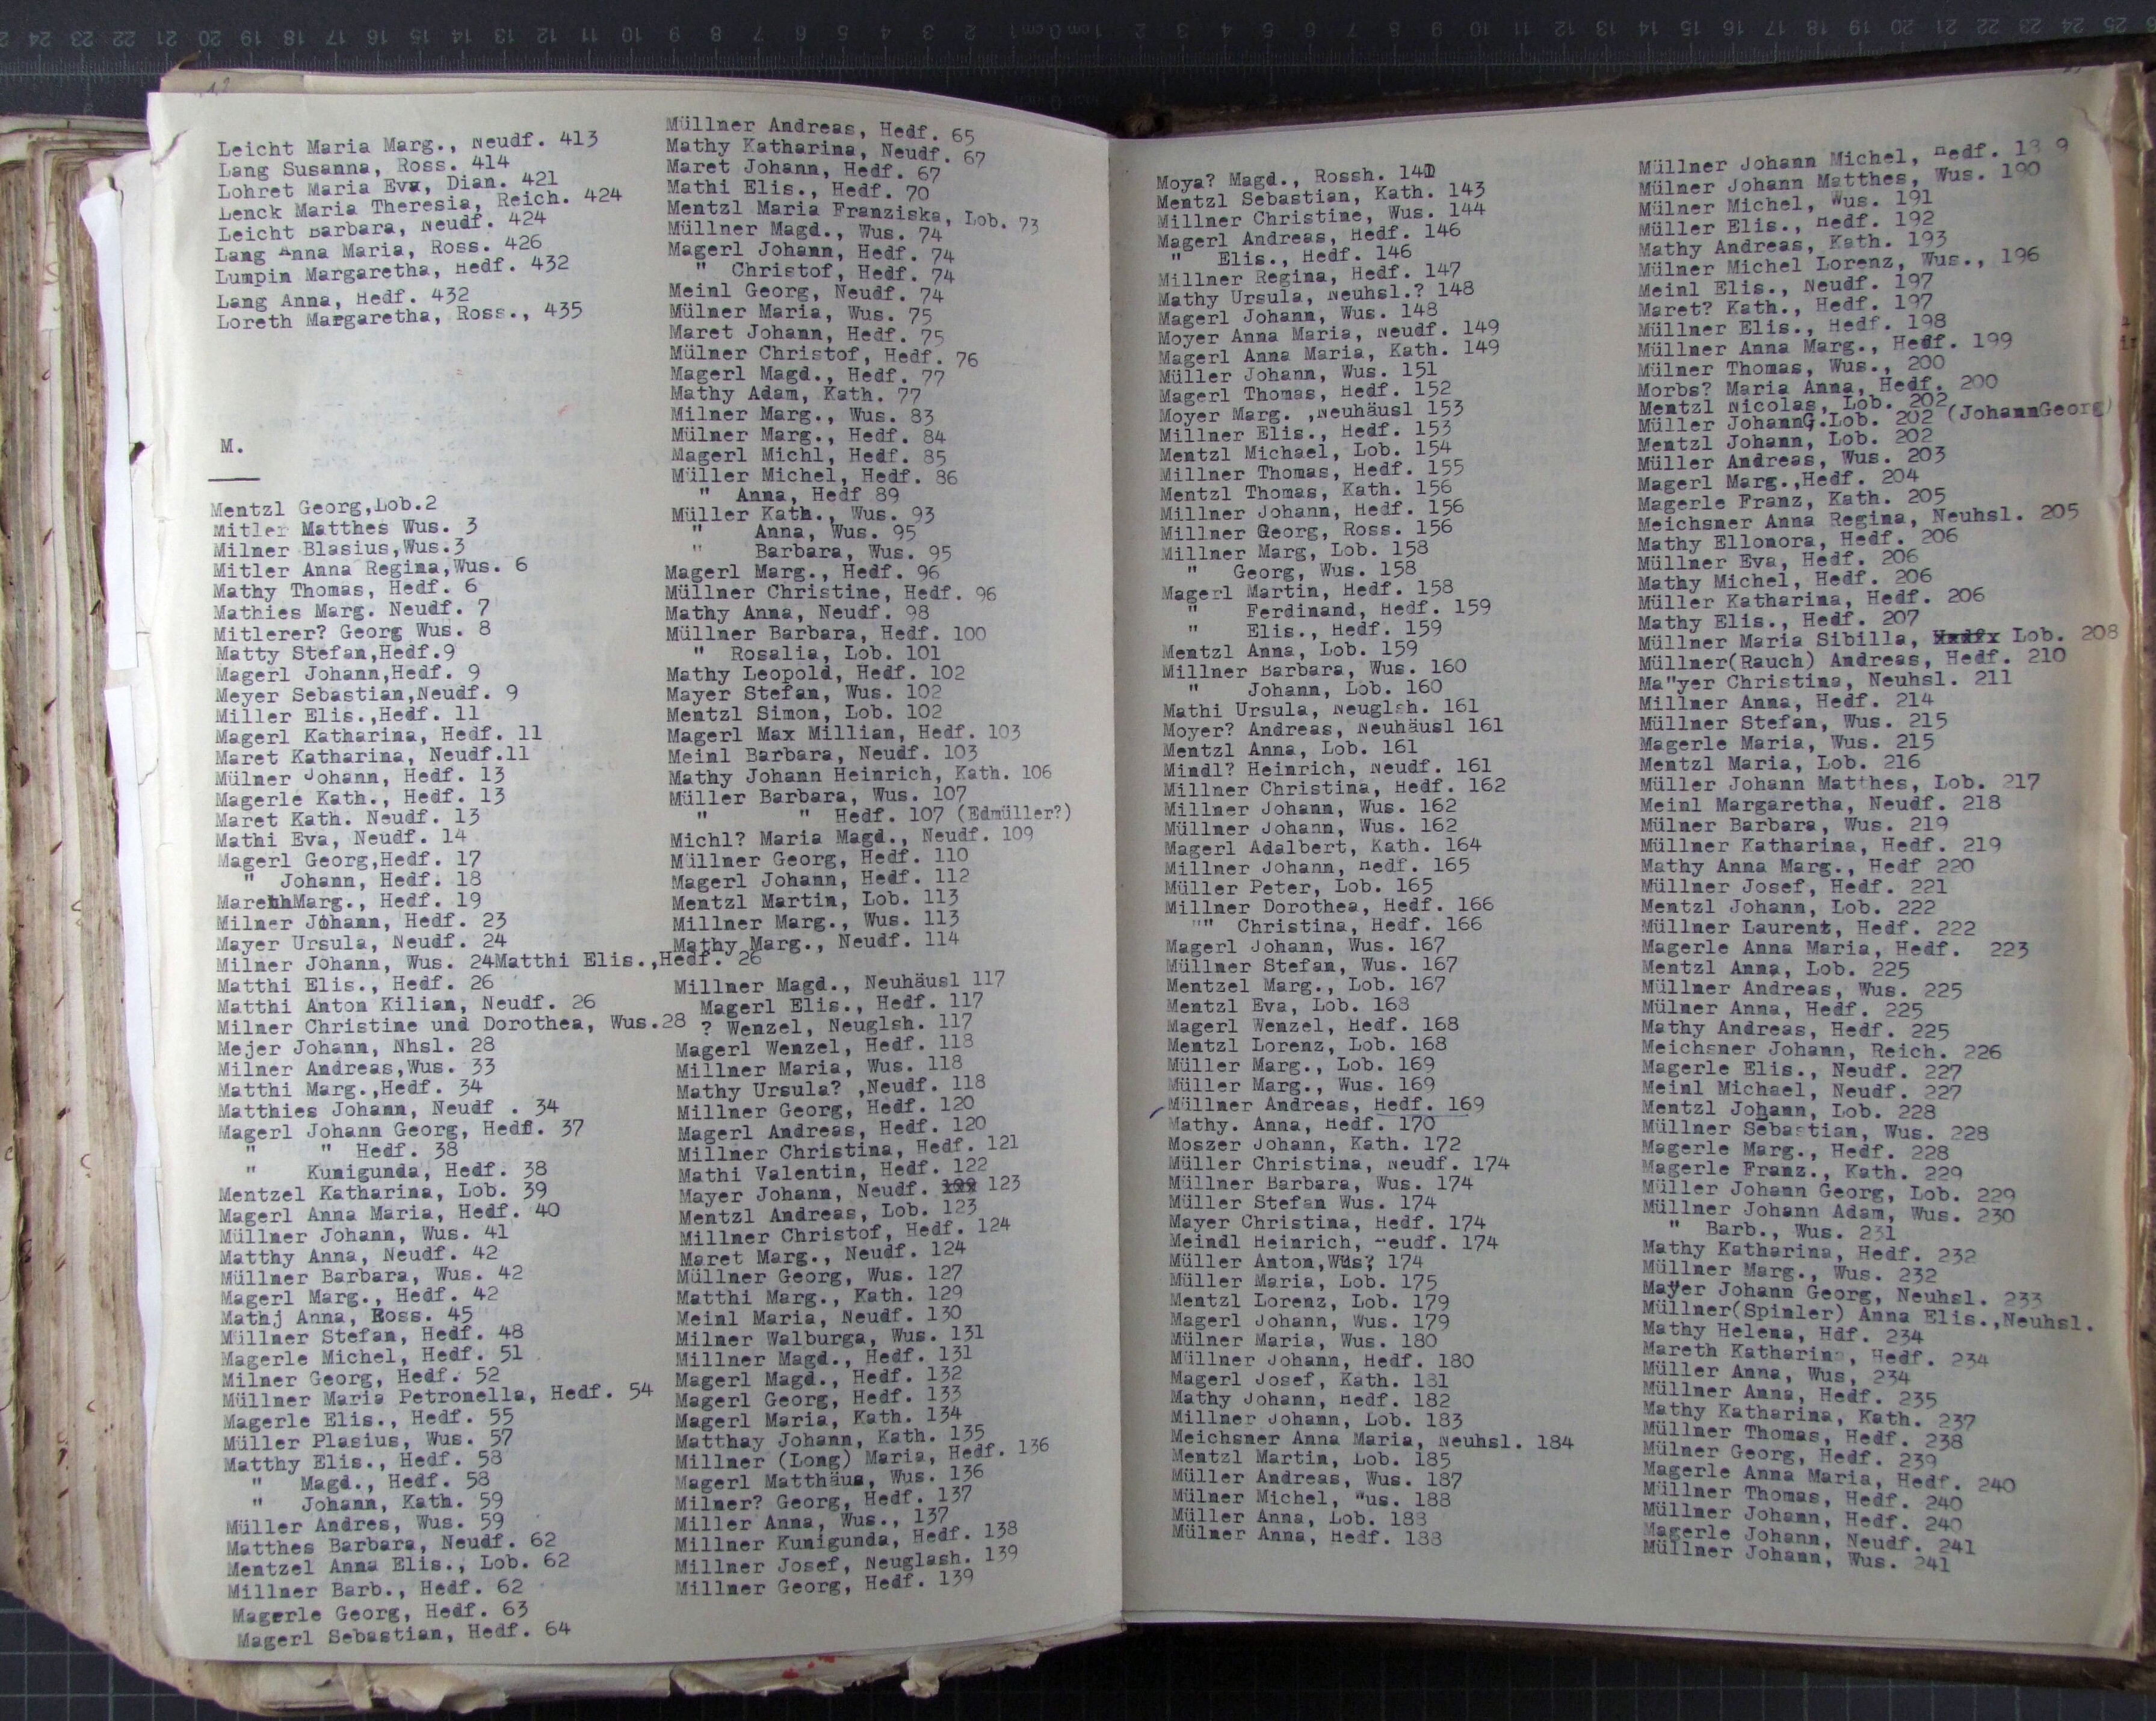 Leicht Maria Marg., Neudf. 413
Lang Susanna, Ross. 414
Lohret Maria Eva, Dian. 421
Lenck Maria Theresia, Reich. 424
Leicht Barbara, Neudf. 424
Lang Anna Maria, Ross. 426
Lumpin Margaretha, Hedf. 432
Lang Anna, Hedf. 432
Loreth Margaretha, Ross., 435
M.
Mentzl Georg,Lob.2
Mitler Matthes Wus. 3
Milner Blasius,Wus.3
Mitler Anna Regina,Wus. 6
Mathy Thomas, Hedf. 6
Mathies Marg. Neudf. 7
Mitlerer? Georg Wus. 8
Matty Stefan,Hedf.9
Magerl Johann,Hedf. 9
Meyer Sebastian,Neudf. 9
Miller Elis.,Hedf. 11
Magerl Katharina, Hedf. 11
Maret Katharina, Neudf.11
Mülner Johann, Hedf. 13
Magerle Kath., Hedf. 13
Maret Kath. Neudf. 13
Mathi Eva, Neudf. 14
Magerl Georg,Hedf. 17
" Johann, Hedf. 18
Mareth Marg., Hedf. 19
Milner Johann, Hedf. 23
Mayer Ursula, Neudf. 24
Milner Johann, Wus. 24Matthi Elis.,Hedf. 26
Matthi Elis., Hedf. 26
Matthi Anton Kilian, Neudf. 26
Milner Christine und Dorothea, Wus.28
Mejer Johann, Nhsl. 28
Milner Andreas,Wus. 33
Matthi Marg.,Hedf. 34
Matthies Johann, Neudf . 34
Magerl Johann Georg, Hedf. 37
" " Hedf. 38
" Kunigunda, Hedf. 38
Mentzel Katharina, Lob. 39
Magerl Anna Maria, Hedf. 40
Müllner Johann, Wus. 41
Matthy Anna, Neudf. 42
Müllner Barbara, Wus. 42
Magerl Marg., Hedf. 42
Mathj Anna, Ross. 45
Müllner Stefan, Hedf. 48
Magerle Michel, Hedf. 51
Milner Georg, Hedf. 52
Müllner Maria Petronella, Hedf. 54
Magerle Elis., Hedf. 55
Müller Plasius, Wus. 57
Matthy Elis., Hedf. 58
" Magd., Hedf. 58
" Johann, Kath. 59
Müller Andres, Wus. 59
Matthes Barbara, Neudf. 62
Mentzel Anna Elis., Lob. 62
Millner Barb., Hedf. 62
Magerle Georg, Hedf. 63
Magerl Sebastian, Hedf. 64
Müllner Andreas, Hedf. 65
Mathy Katharina, Neudf. 67
Maret Johann, Hedf. 67
Mathi Elis., Hedf. 70
Mentzl Maria Franziska, Lob. 73
Müllner Magd., Wus. 74
Magerl Johann, Hedf. 74
" Christof, Hedf. 74
Meinl Georg, Neudf. 74
Mülner Maria, Wus. 75
Maret Johann, Hedf. 75
Mülner Christof, Hedf. 76
Magerl Magd., Hedf. 77
Mathy Adam, Kath. 77
Milner Marg., Wus. 83
Mülner Marg., Hedf. 84
Magerl Michl, Hedf. 85
Müller Michel, Hedf. 86
" Anna, Hedf 89
Müller Kath., Wus. 93
" Anna, Wus. 95
" Barbara, Wus. 95
Magerl Marg., Hedf. 96
Müllner Christine, Hedf. 96
Mathy Anna, Neudf. 98
Müllner Barbara, Hedf. 100
" Rosalia, Lob. 101
Mathy Leopold, Hedf. 102
Mayer Stefan, Wus. 102
Mentzl Simon, Lob. 102
Magerl Max Millian, Hedf. 103
Meinl Barbara, Neudf. 103
Mathy Johann Heinrich, Kath. 106
Müller Barbara, Wus. 107
" " Hedf. 107 (Edmüller?)
Michl? Maria Magd., Neudf. 109
Müllner Georg, Hedf. 110
Magerl Johann, Hedf. 112
Mentzl Martin, Lob. 113
Millner Marg., Wus. 113
Mathy Marg., Neudf. 114
Millner Magd., Neuhäusl 117
Magerl Elis., Hedf. 117
? Wenzel, Neuglsh. 117
Magerl Wenzel, Hedf. 118
Millner Maria, Wus. 118
Mathy Ursula? ,Neudf. 118
Millner Georg, Hedf. 120
Magerl Andreas, Hedf. 120
Millner Christina, Hedf. 121
Mathi Valentin, Hedf. 122
Mayer Johann, Neudf. 123
Mentzl Andreas, Lob. 123
Millner Christof, Hedf. 124
Maret Marg., Neudf. 124
Müllner Georg, Wus. 127
Matthi Marg., Kath. 129
Meinl Maria, Neudf. 130
Milner Walburga, Wus. 131
Millner Magd., Hedf. 131
Magerl Magd., Hedf. 132
Magerl Georg, Hedf. 133
Magerl Maria, Kath. 134
Matthay Johann, Kath. 135
Millner (Long) Maria, Hedf. 136
Magerl Matthäus, Wus. 136
Milner? Georg, Hedf. 137
Miller Anna, Wus., 137
Millner Kunigunda, Hedf. 138
Millner Josef, Neuglash. 139
Millner Georg, Hedf. 139
Moya? Magd., Rossh.
Mentzl Sebastian, Kath. 143
Millner Christine, Wus. 144
Magerl Andreas, Hedf. 146
" Elis., Hedf. 146
Millner Regina, Hedf. 147
Mathy Ursula, Neuhsl.? 148
Magerl Johann, Wus. 148
Moyer Anna Maria, Neudf. 149
Magerl Anna Maria, Kath. 149
Müller Johann, Wus. 151
Magerl Thomas, Hedf. 152
Moyer Marg. ,Neuhäusl 153
Millner Elis., Hedf. 153
Mentzl Michael, Lob. 154
Millner Thomas, Hedf. 155
Mentzl Thomas, Kath. 156
Millner Johann, Hedf. 156
Millner Georg, Ross. 156
Millner Marg, Lob. 158
" Georg, Wus. 158
Magerl Martin, Hedf. 158
" Ferdinand, Hedf. 159
" Elis., Hedf. 159
Mentzl Anna, Lob. 159
Millner Barbara, Wus. 160
" Johann, Lob. 160
Mathi Ursula, Neuglsh. 161
Moyer? Andreas, Neuhäusl 161
Mentzl Anna, Lob. 161
Mindl? Heinrich, Neudf. 161
Millner Christina, Hedf. 162
Millner Johann, Wus. 162
Müllner Johann, Wus. 162
Magerl Adalbert, Kath. 164
Millner Johann, Hedf. 165
Müller Peter, Lob. 165
Millner Dorothea, Hedf. 166
"" Christina, Hedf. 166
Magerl Johann, Wus. 167
Müllner Stefan, Wus. 167
Mentzel Marg., Lob. 167
Mentzl Eva, Lob. 168
Magerl Wenzel, Hedf. 168
Mentzl Lorenz, Lob. 168
Müller Marg., Lob. 169
Müller Marg., Wus. 169
Müllner Andreas, Hedf. 169
Mathy. Anna, Hedf. 170
Moszer Johann, Kath. 172
Müller Christina, Neudf. 174
Müllner Barbara, Wus. 174
Müller Stefan Wus. 174
Mayer Christina, Hedf. 174
Meindl Heinrich, Neudf. 174
Müller Anton,Wus? 174
Müller Maria, Lob. 175
Mentzl Lorenz, Lob. 179
Magerl Johann, Wus. 179
Mülner Maria, Wus. 180
Müllner Johann, Hedf. 180
Magerl Josef, Kath. 181
Mathy Johann, Hedf. 182
Millner Johann, Lob. 183
Meichsner Anna Maria, Neuhsl. 184
Mentzl Martin, Lob. 185
Müller Andreas, Wus. 187
Mülner Michel, Wus. 188
Müller Anna, Lob. 188
Mülner Anna, Hedf. 188
Müllner Johann Michel, Hedf. 18 9
Mülner Johann Matthes, Wus. 190
Mülner Michel, Wus. 191
Müller Elis., Hedf. 192
Mathy Andreas, Kath. 193
Mülner Michel Lorenz, Wus., 196
Meinl Elis., Neudf. 197
Maret? Kath., Hedf. 197
Müllner Elis., Hedf. 198
Müllner Anna Marg., Hedf. 199
Mülner Thomas, Wus., 200
Morbs? Maria Anna, Hedf. 200
Mentzl Nicolas, Lob. 202
Müller JohannG.Lob. 202 (JohannGeorg)
Mentzl Johann, Lob. 202
Müller Andreas, Wus. 203
Magerl Marg.,Hedf. 204
Magerle Franz, Kath. 205
Meichsner Anna Regina, Neuhsl. 205
Mathy Ellonora, Hedf. 206
Müllner Eva, Hedf. 206
Mathy Michel, Hedf. 206
Müller Katharina, Hedf. 206
Mathy Elis., Hedf. 207
Müllner Maria Sibilla, Lob. 208
Müllner(Rauch) Andreas, Hedf. 210
Ma"yer Christina, Neuhsl. 211
Millner Anna, Hedf. 214
Müllner Stefan, Wus. 215
Magerle Maria, Wus. 215
Mentzl Maria, Lob. 216
Müller Johann Matthes, Lob. 217
Meinl Margaretha, Neudf. 218
Mülner Barbara, Wus. 219
Müllner Katharina, Hedf. 219
Mathy Anna Marg., Hedf 220
Müllner Josef, Hedf. 221
Mentzl Johann, Lob. 222
Müllner Laurent, Hedf. 222
Magerle Anna Maria, Hedf. 223
Mentzl Anna, Lob. 225
Müllner Andreas, Wus. 225
Mülner Anna, Hedf. 225
Mathy Andreas, Hedf. 225
Meichsner Johann, Reich. 226
Magerle Elis., Neudf. 227
Meinl Michael, Neudf. 227
Mentzl Johann, Lob. 228
Müllner Sebastian, Wus. 228
Magerle Marg., Hedf. 228
Magerle Franz., Kath. 229
Müller Johann Georg, Lob. 229
Müllner Johann Adam, Wus. 230
" Barb., Wus. 231
Mathy Katharina, Hedf. 232
Müllner Marg., Wus. 232
Mayer Johann Georg, Neuhsl. 233
Müllner(Spinler) Anna Elis.,Neuhsl.
Mathy Helena, Hdf. 234
Mareth Katharina, Hedf. 234
Müller Anna, Wus, 234
Müllner Anna, Hedf. 235
Mathy Katharina, Kath. 237
Müllner Thomas, Hedf. 238
Mülner Georg, Hedf. 239
Magerle Anna Maria, Hedf. 240
Müllner Thomas, Hedf. 240
Müllner Johann, Hedf. 240
Magerle Johann, Neudf. 241
Müllner Johann, Wus. 241